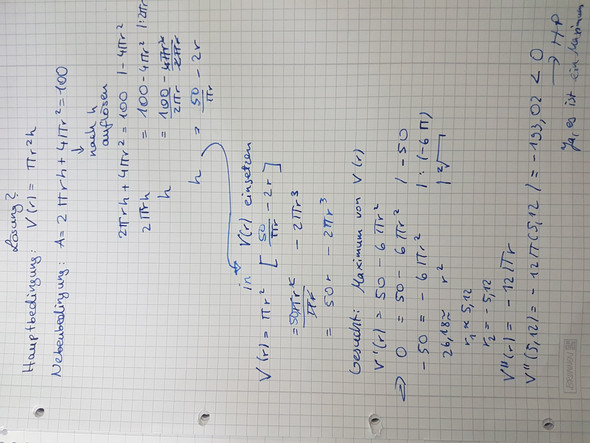 Lösung?
Hauptbedingung: V(r) = πr²h
Nebenbedingung: A = 2πrh + 4πr² = 100
↓
nach h
auflösen
2πrh + 4πr² = 100 | - 4πr²
2πrh = 100 - 4πr² | : 2πr
h = 100/2πr - 4πr²/2πr
h = 50/πr - 2r
in V(r) einsetzen
V(r) = πr² [ 50/πr - 2r ]
= 50πr²/πr - 2πr³
= 50r - 2πr³
Gesucht: Maximum von V(r)
V'(r) = 50 - 6πr²
⇔ 0 = 50 - 6πr² | - 50
- 50 = - 6πr² | : (-6π)
26,18 ≈ r² | ²√
r₁ ≈ 5,12
r₂ = - 5,12
V''(r) = - 12πr
V''(5,12) = - 12π(5,12) = - 193,02 < 0
→ HP
Ja, es ist ein Maximum